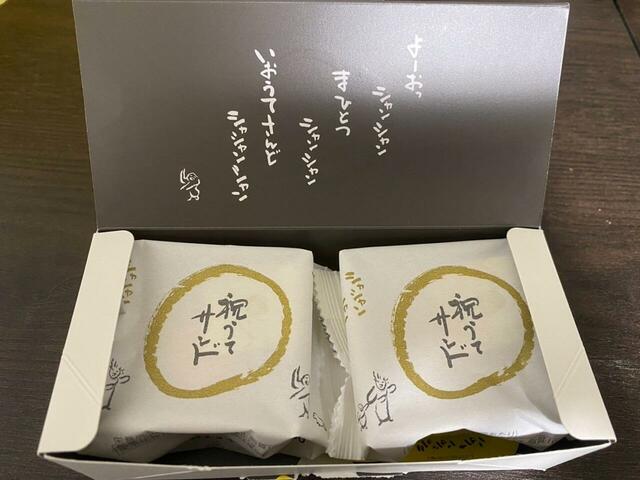 よーおっ
シャンシャン
まひとつ
シャンシャン
いおうてさんど
シャシャンシャン
祝うて
サンド
祝うて
サンド
シャンシャン